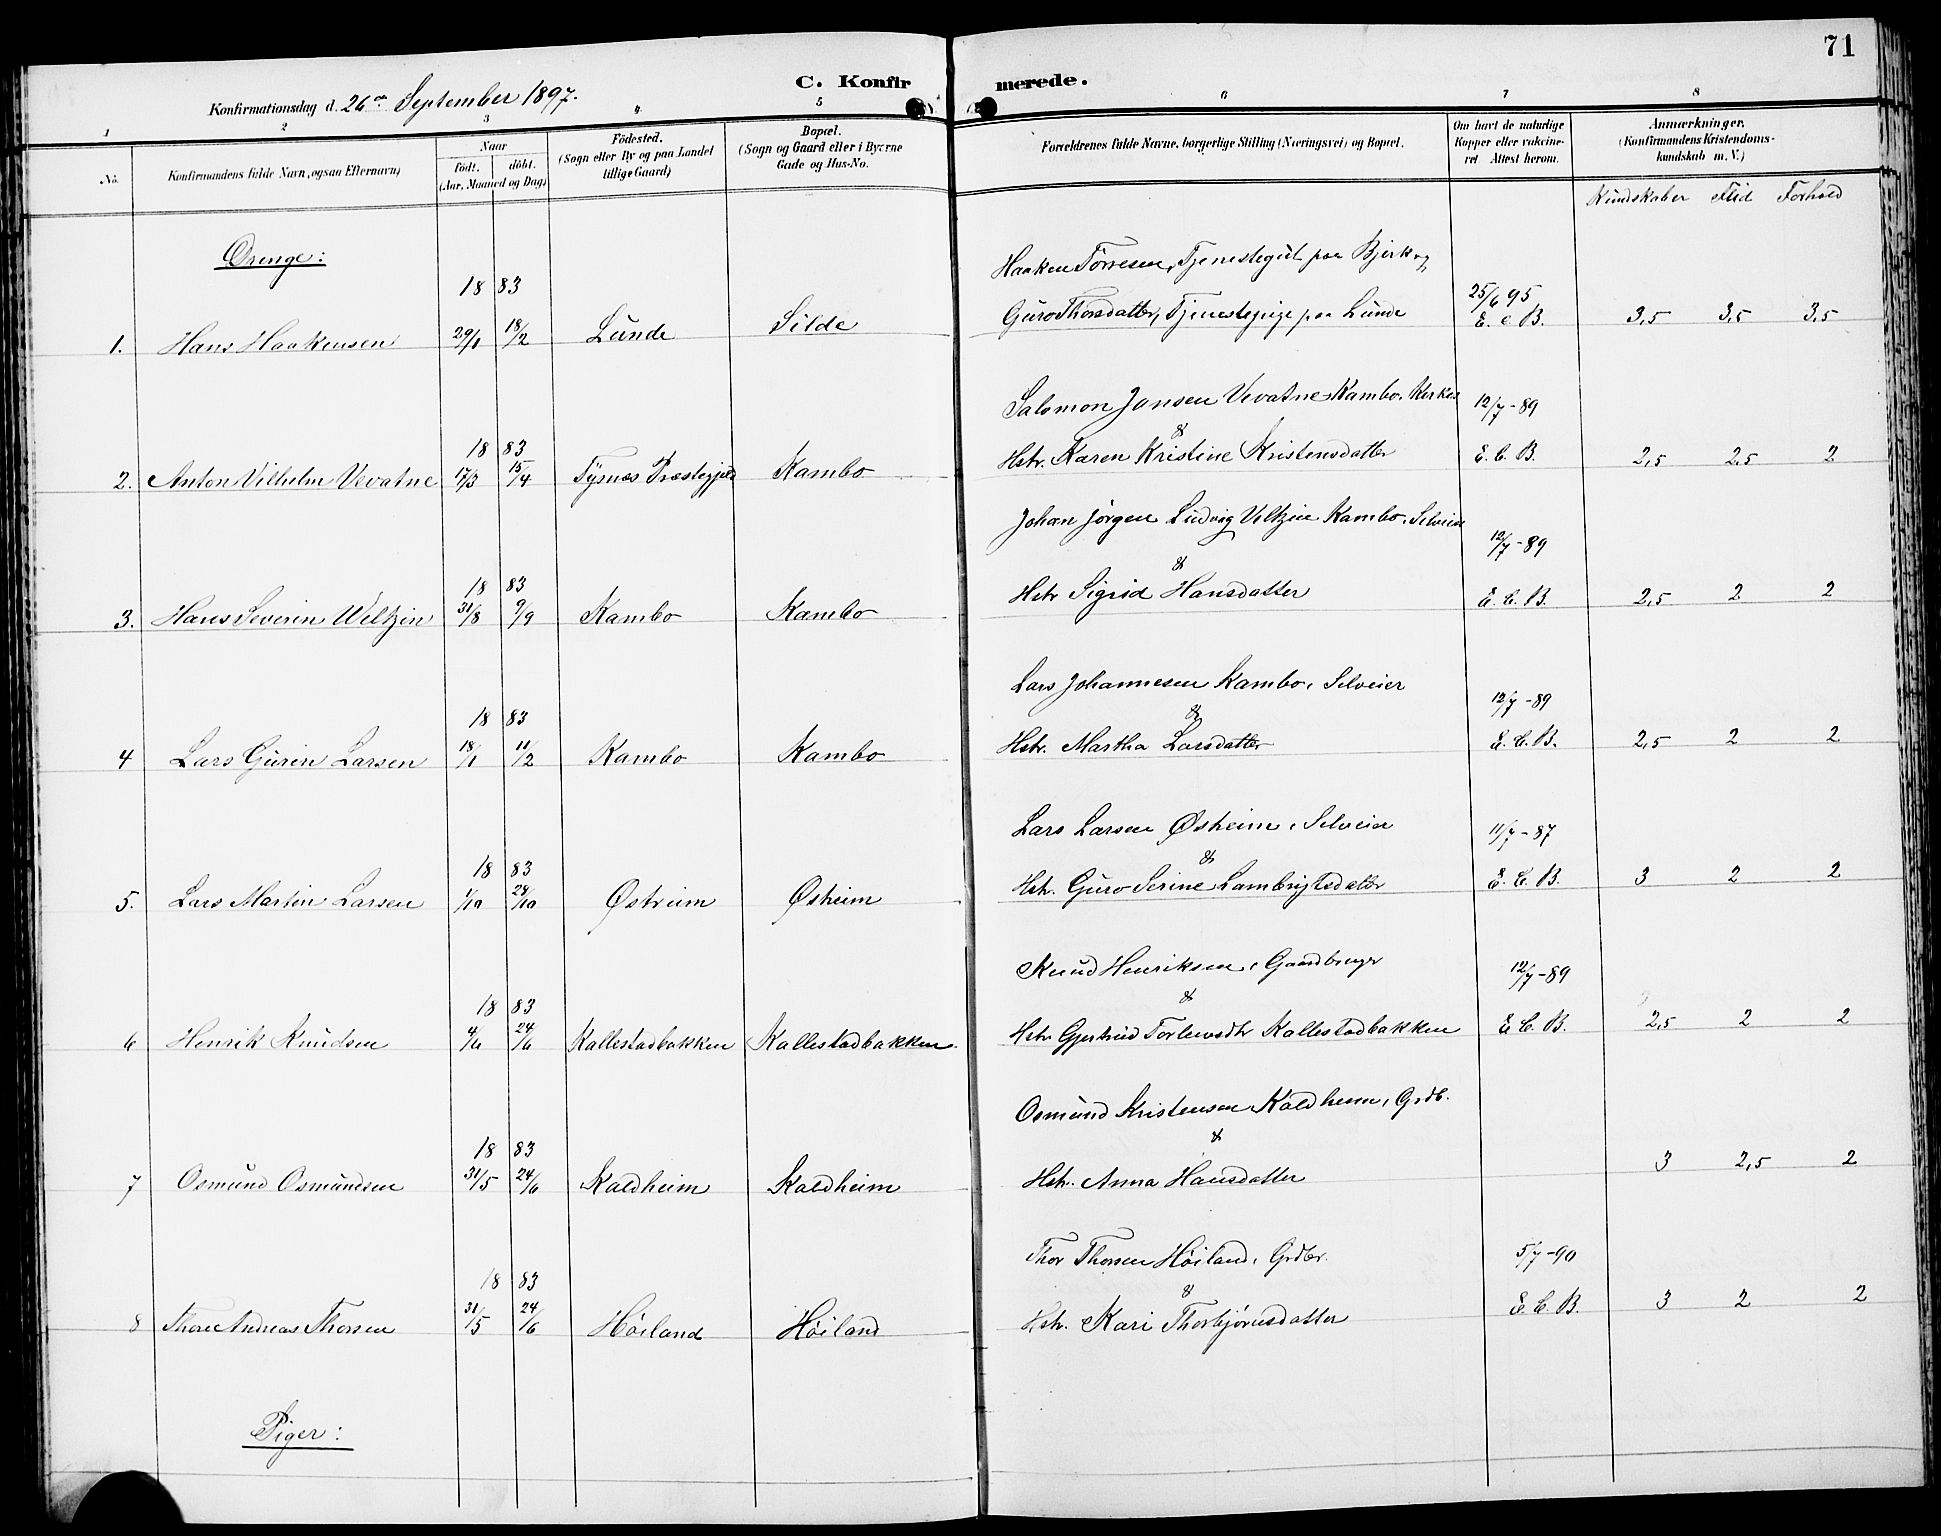 71
C. Konfirmerede.
Konfirmationsdag d. 26de September 1897.
1 2 3 4 5 6 7 8
No.
Konfirmandens fulde Navn, ogsaa Efternavn)
Naar
födt. döbt.
(Aar, Maaned og Dag)
Födested.
(Sogn eller By og paa Landet
tillige Gaard)
Bopæl.
(Sogn og Gaard eller i Byerne
Gade og Hus-No.
Forældrenes fulde Navne, borgerlige Stilling (Næringsvei) og Bopæl.
Om havt de naturlige
Kopper eller vakcine-
ret Attest herom.
Anmærkninger.
(Konfirmandens Kristendoms-
kundskab m. V.)
Kundskaber Flid Forhold
Drenge:
Haaken Torresen, Tjenestegut paa Bjerk og
18 83
25/6 95
1. Hans Haakensen 29/1 18/2 Lunde Silde Guro Thorsdatter, Tjenestepige paa Lunde E. e B. 3,5 3,5 3,5
Salomon Jansen Vevatne Kambo,
12/7-89
18 83
&
2. Anton Vilhelm Vevatne 17/3 15/4 Tysnæs Præstegjeld Kambo Hstr. Karen Kristine Kristensdatter E. C. B. 2,5 2,5 2
Johan Jørgen Ludvig Veltzin Kambo, Selveier
12/7-89
18 83
&
3. Hans Severin Weltzin 31/8 9/9 Kambo Kambo Hstr Sigrid Hansdatter E. C. B. 2,5 2 2
Lars Johannesen Kambo, Selveier
12/7-89
18 83
&
4 Lars Gurin Larsen 18/1 11/2 Kambo Kambo Hstr. Martha Larsdatter E. C. B. 2,5 2 2
Lars Larsen Østheim, Selveier
11/7-87
18 83
&
5. Lars Martin Larsen 1/10 24/10 Østreim Østheim Hstr. Guro Serine Lambrigtsdatter E. C. B. 3 2 2
Knud Henriksen, Gaardbruger
12/7-89
18 83
&
6 Henrik Knudsen 4/6 24/6 Kallestadbakken Kallestadbakken. Hstr Gjertrud Torlewsdtr Kallestadbakken E. C. B. 2,5 2 2
Osmund Kristensen Kaldheim, Grdb.
18 83
&
7 Osmund Osmundsen 31/5 24/6 Kaldheim Kaldheim Hstr. Anna Hansdatter 3 2,5 2
Thor Thorsen Høiland, Grdbr.
5/7-90
18 83
&
8 Thore Andreas Thorsen 31/5 24/6 Høiland Høiland Hstr. Kari Thorbjørnsdatter E. C. B. 3 2 2
Piger: